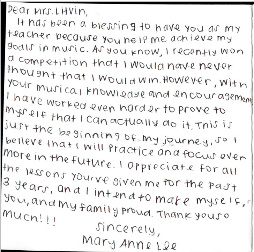 Dear Mrs. Litvin,
It has been a blessing to have you as my
teacher because you help me achieve my
goals in music. As you know, I recently won
a competition that I would have never
thought that I would win. However, with
your musical knowledge and encouragement
I have worked even harder to prove to
myself that I can actually do it. This is
just the beginning of my journey, so I
believe that I will practice and focus even
more in the future. I appreciate for all
the lessons you've given me for the past
3 years, and I intend to make myself,
you, and my family proud. Thank you so
much!!!
Sincerely,
Mary Anne Lee